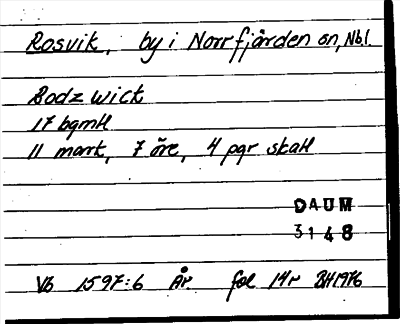 Rosvik, by i Norrfjärden sn, Nbl.
Bodz wick
17 bgmll
11 mark, 7 öre, 4 pgr skatt
DAUM
3148
Vb 1597:6 År fol 14r BH1976